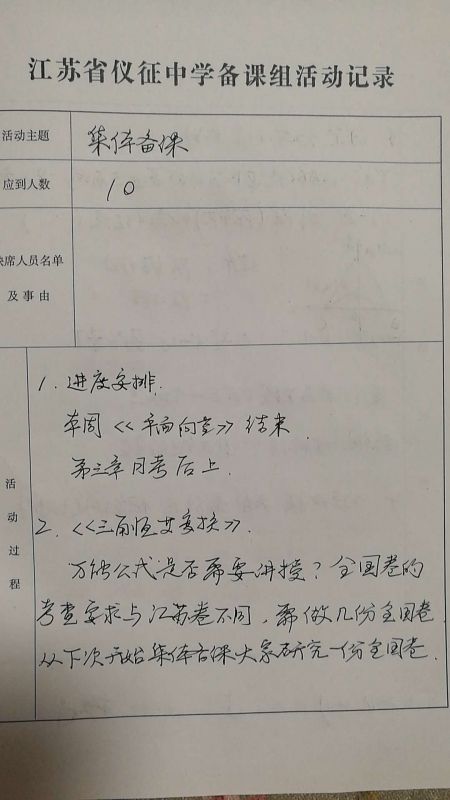 江苏省仪征中学备课组活动记录
活动主题 集体备课
应到人数 10
缺席人员名单
及事由
活动过程
1. 进度安排.
本周《平面向量》结束
第三章月考后上.
2.《三角恒等变换》.
万能公式是否需要讲授?全国卷的
考查要求与江苏卷不同,需做几份全国卷.
从下次开始集体备课大家研究一份全国卷.